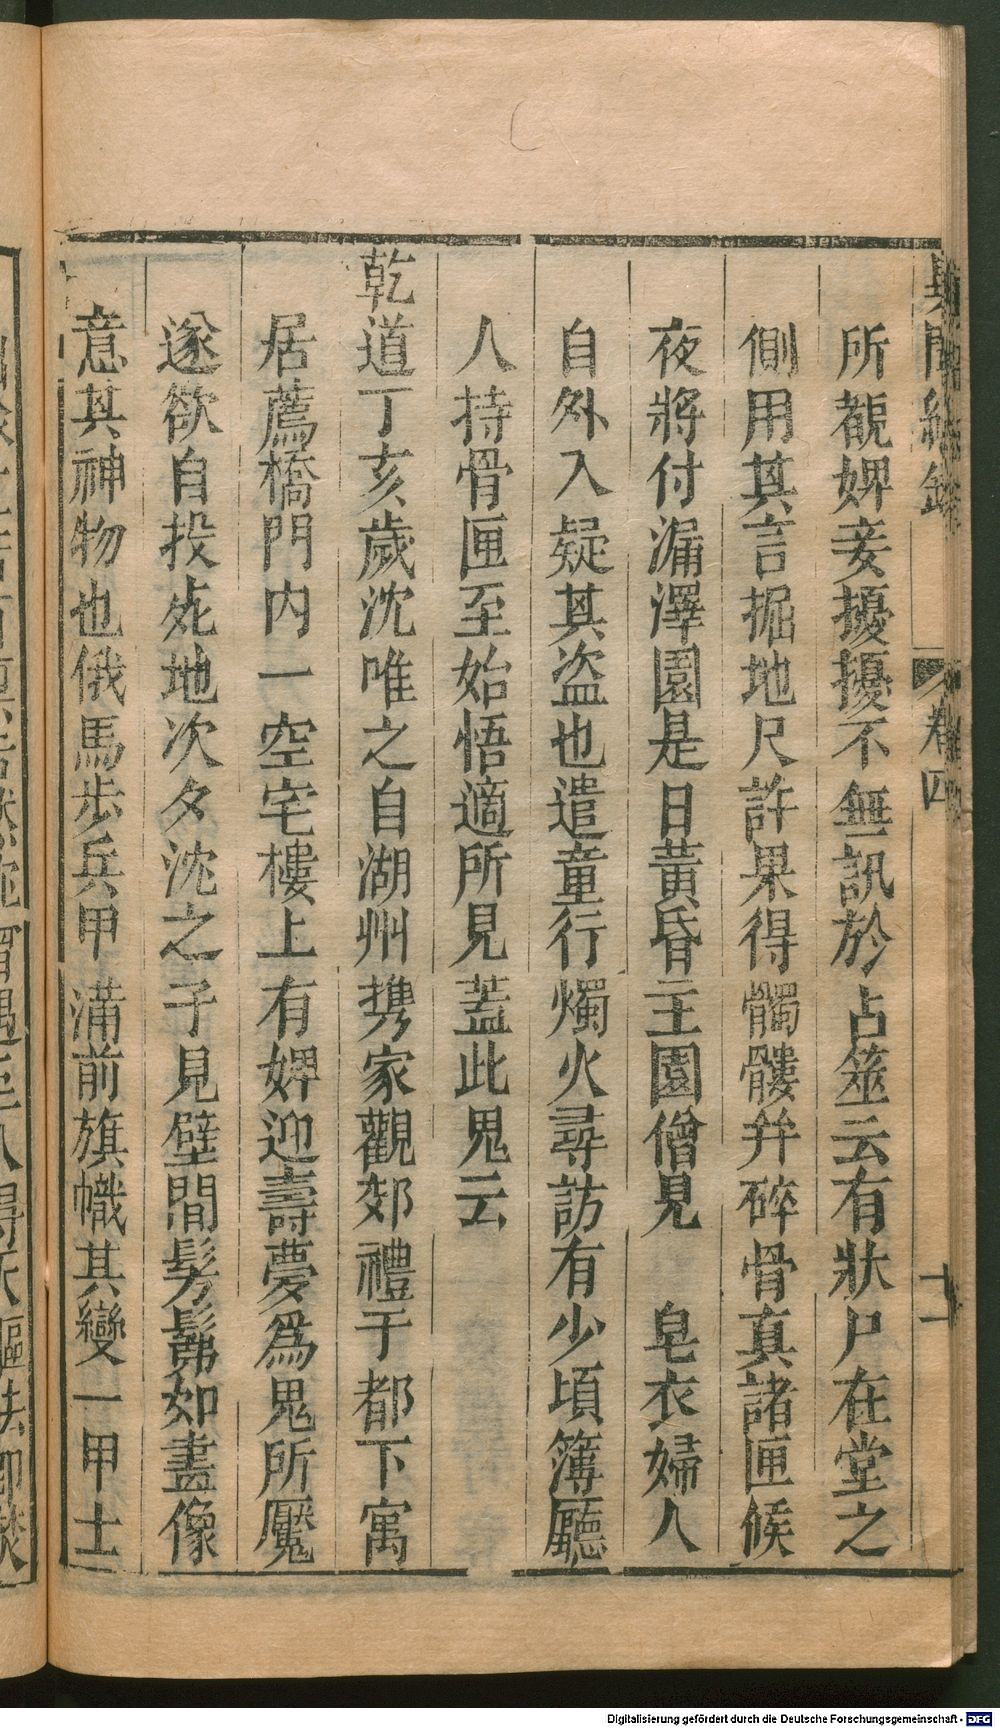 所覩婢妾擾擾不無訊於占筮云有狀尸在堂之
側用其言掘地尺許果得髑髏并碎骨真諸匣候
夜將付漏澤園是日黃昏主園僧見 皂衣婦人
自外入疑其盜也遣童行燭火尋訪有少頃簿廳
人持骨匣至始悟適所見蓋此鬼云
乾道丁亥歲沈唯之自湖州携家觀郊禮于都下寓
居薦橋門内一空宅樓上有婢迎壽夢爲鬼所魘
遂欲自投死地次夕沈之子見壁間髣髴如畫像
意其神物也俄馬步兵甲滿前旗幟其變一甲士
卷四
十一
Digitalisierung gefördert durch die Deutsche Forschungsgemeinschaft - DFG